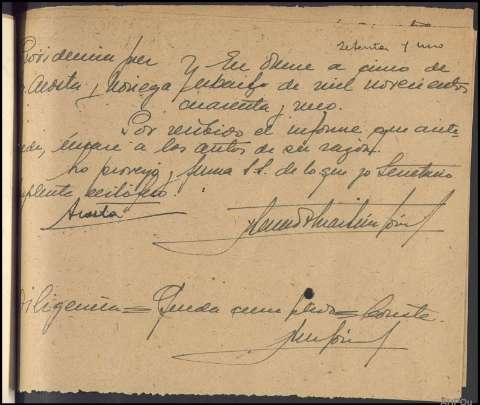 setenta y uno
Providencia juez } En Orense a cinco de
Sr. Acosta y Noriega } de mil novecientos
cuarenta y uno.
Por recibido el informe que ante-
cede, únase a los autos de su razón.
Lo proveyó, firma S.S. de lo que yo Secretario
suplente certifico.
Acosta
Diligencia = Queda cumplido = Conste.